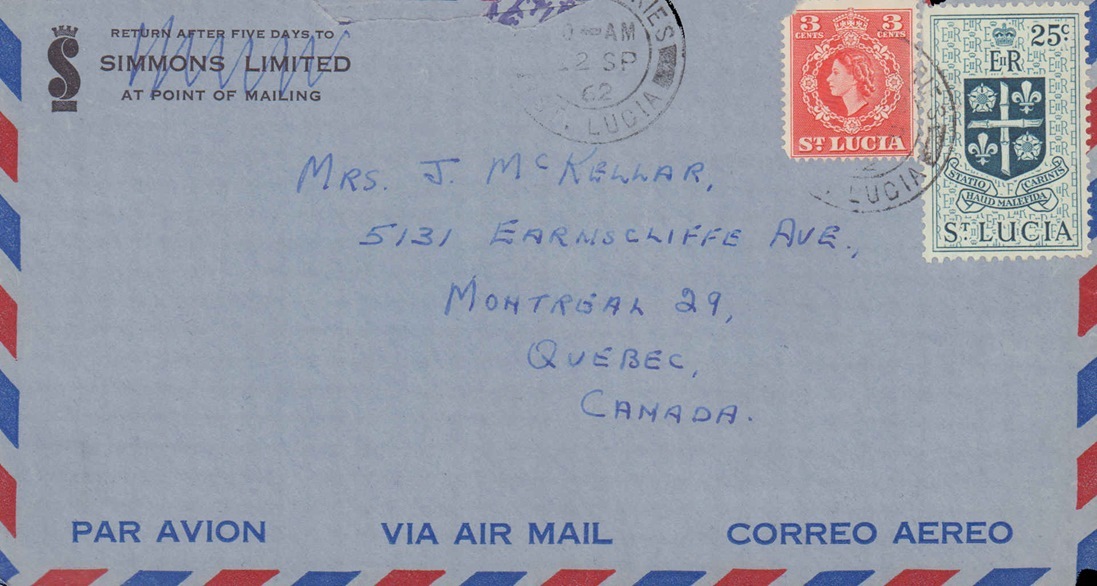 RETURN AFTER FIVE DAYS TO
SIMMONS LIMITED
AT POINT OF MAILING
AM
2 SP
62
LUCIA
3 CENTS 3 CENTS
ST LUCIA
LUCIA
25c
EIIR
STATIO HAUD MALEFIDA CARINIS
ST LUCIA
MRS. J. MCKELLAR,
5131 EARNSCLIFFE AVE.,
MONTREAL 29,
QUEBEC,
CANADA.
PAR AVION VIA AIR MAIL CORREO AEREO